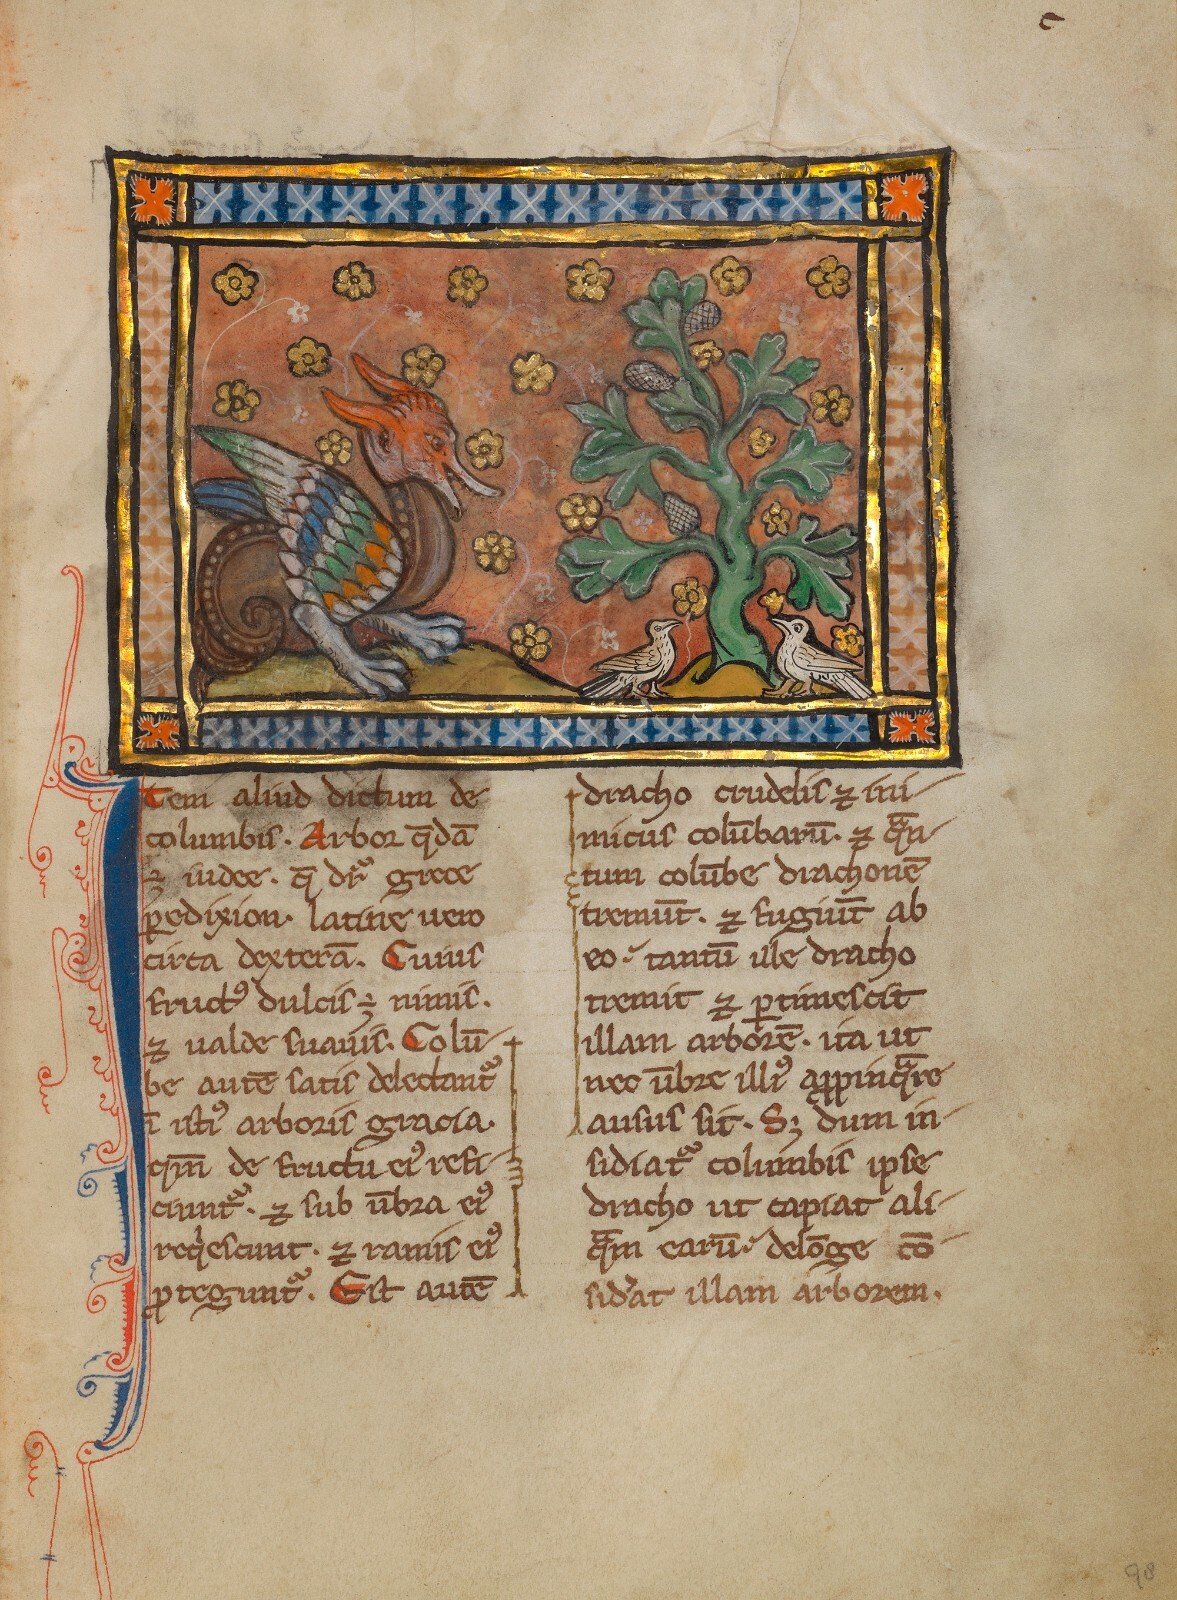 Item aliud dictum de
columbis. Arbor q̄dā
⁊ indee. q̄ dr̄ grece
pedixion. latine uero
circa dexterā. Cuius
fructꝰ dulcis ē nimis.
⁊ ualde suauis. Colū-
be autē satis delectant᷑
ī istiꝰ arboris gracia.
qm̄ de fructu eiꝰ refi-
ciunt᷑. ⁊ sub ūbra eiꝰ
reqiescunt. ⁊ ramis eiꝰ
ꝓtegunt᷑. Est autē
dracho crudelis ⁊ ini-
micus colūbarū. ⁊ qān-
tum colūbe drachonē
tremūt. ⁊ fugiūt ab
eo. tantū ille dracho
tremit ⁊ ꝑtimescit
illam arborē. ita ut
nec ūbre illiꝰ aꝓpinqāre
ausus sit. Sꝫ dum in-
sidiat᷑ columbis ipse
dracho ut capiat ali-
qām earū. delōge cō-
sid̓at illam arborem.
98